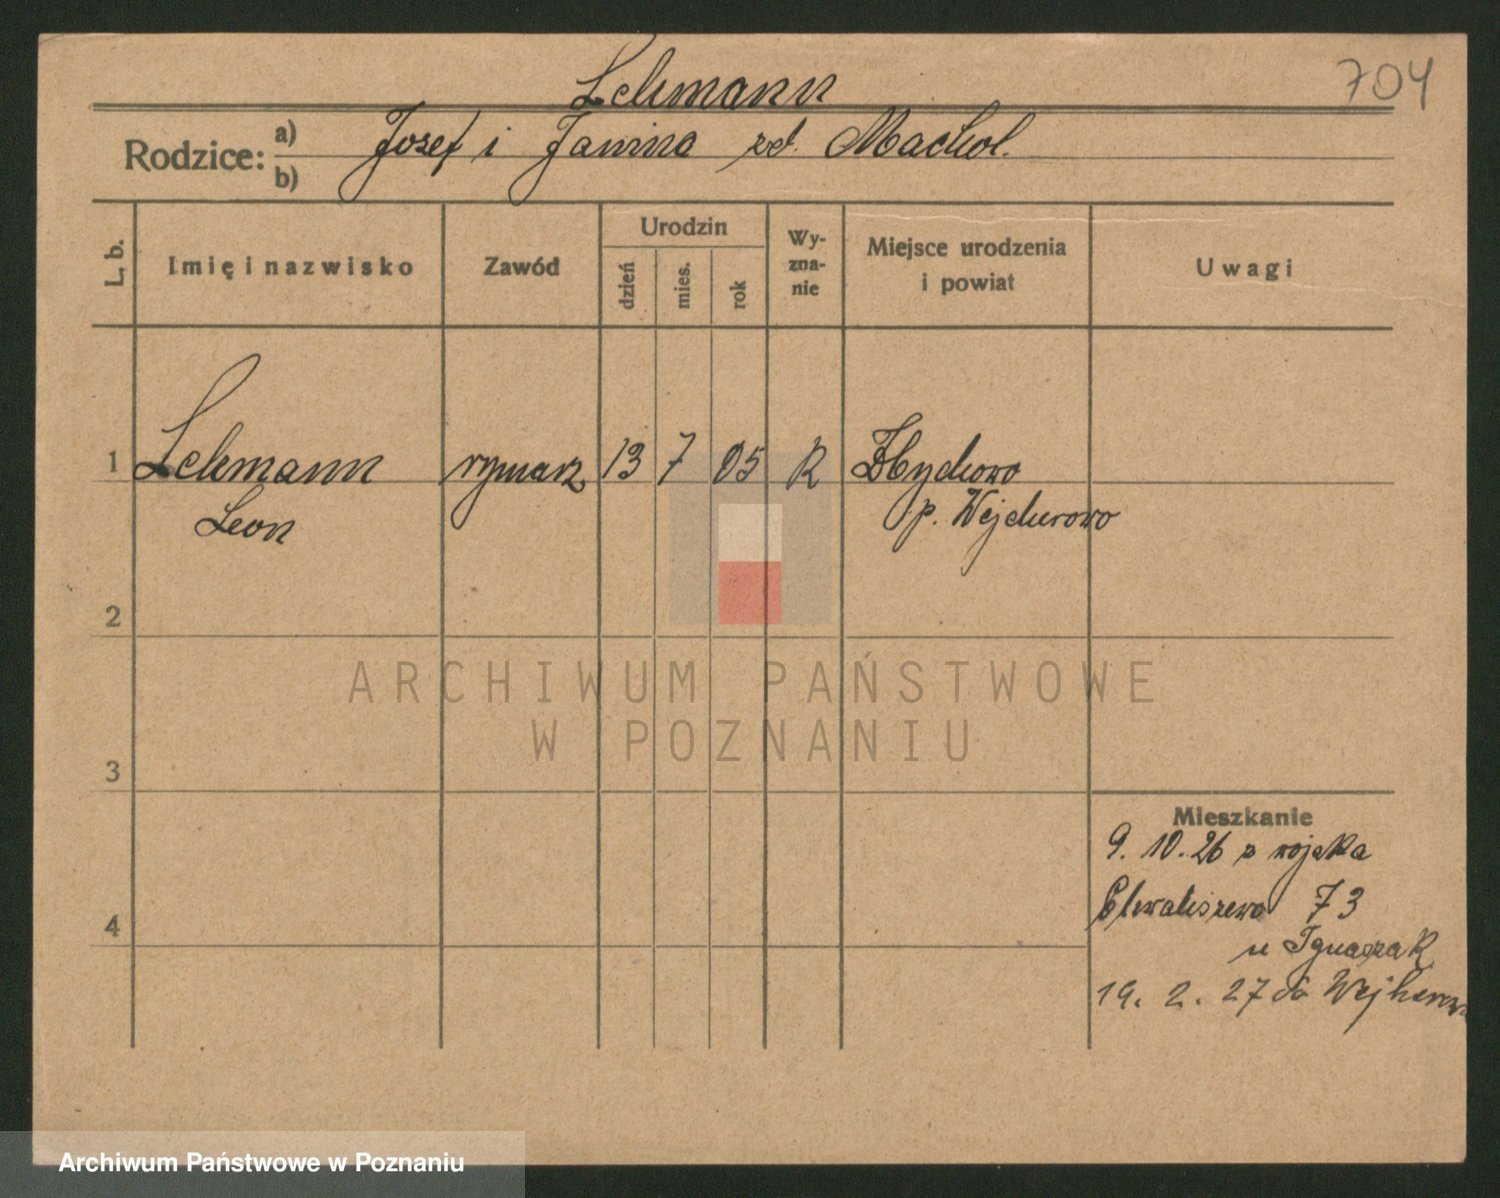 704
Lehmann
Rodzice: a) Jozef i Janina zd. Machol.
b)
L. b. Imię i nazwisko Zawód Urodzin dzień mies. rok Wy-zna-nie Miejsce urodzenia i powiat Uwagi
1 Lehmann rymarz 13 7 05 R Zbychowo
Leon p. Wejcherowo
2
ARCHIWUM PAŃSTWOWE
W POZNANIU
3
Mieszkanie
9. 10. 26 z wojska
Chwaliszewo 73
4
u Ignaszak
19. 2. 27 do
Archiwum Państwowe w Poznaniu